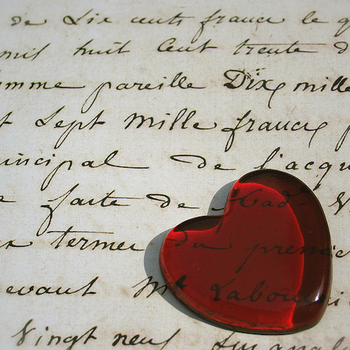 de Six cents francs le
mil huit Cent trente
somme pareille Dix mille
Sept Mille francs
principal de l'acqu
faite de Mad. V
termes du premie
devant Me Labou
Vingt neuf